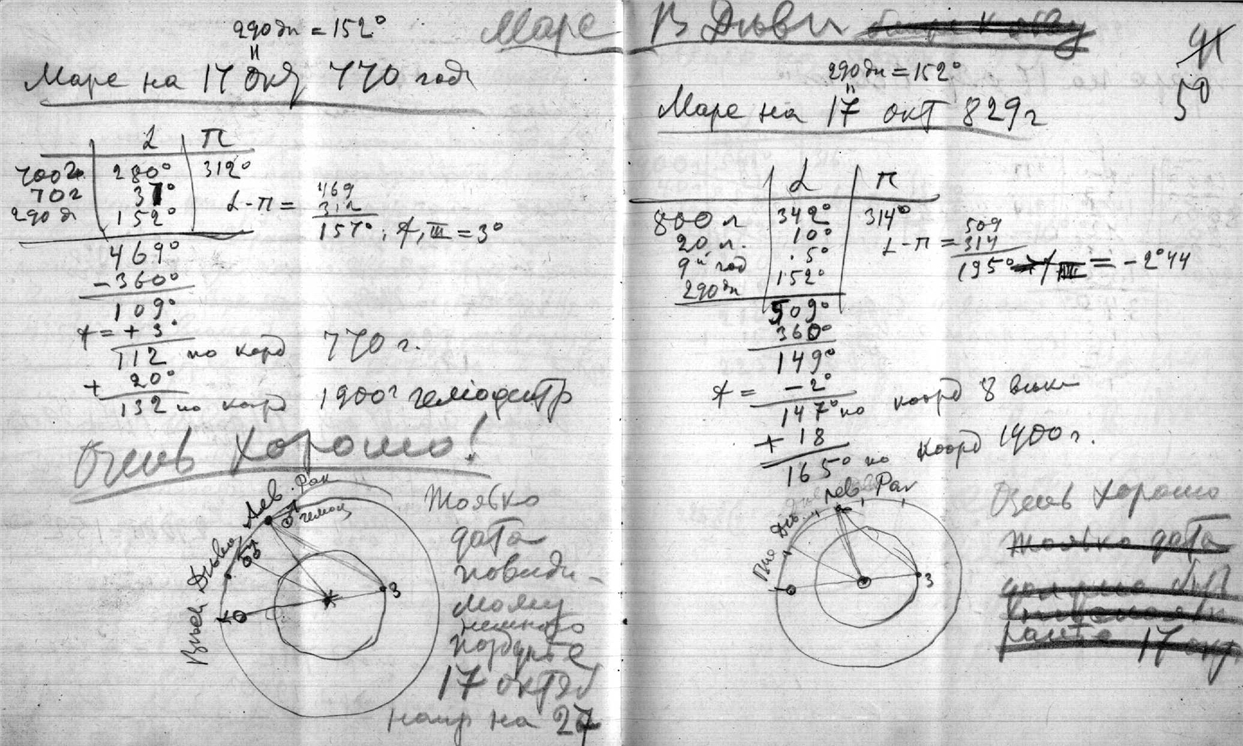 290 дн = 152°
Марс на 17 окт 770 год
L π
700 г. 280° 312°
70 г 37°
290 д 152°
L - π =
469
312
157°; ↑, III = 3°
469°
- 360°
109°
+ 3°
112 по коорд 770 г.
+ 20°
132 по коорд 1900 г гелиоцентр
Очень хорошо!
Дев. Рак
гелиоц
Дева
З
Только
дата
повиди-
мому
немного
позднее
17 октяб
напр на 27
Марс В Деви
91
50
290 дн = 152°
Марс на 17 окт 829 г
L π
800 л 342° 314°
20 л. 10°
9й год 5°
290 дн 152°
L - π =
509
314
195° III = - 2°44
509°
360°
149°
- 2°
147° по коорд 8 века
+ 18
165° по коорд 1900 г.
Рак
З
Очень хорошо
Только дата
17 окт